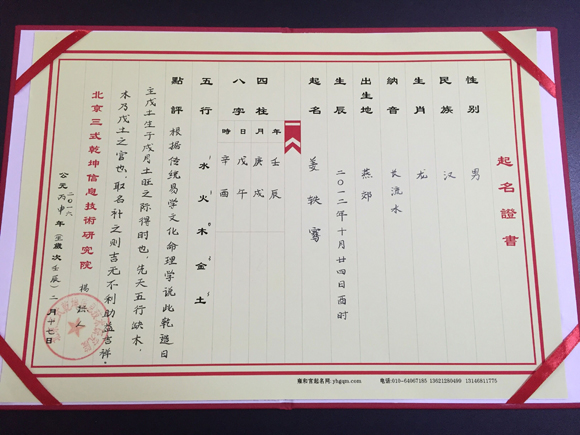 起名證書
性别 男
民族 汉
生肖 龙
納音 长流水
出生地 燕郊
生辰 二〇一二年十月廿四日酉时
起名 姜轶骞
四柱八字
年 壬辰
月 庚戌
日 戊午
時 辛酉
五行 水 火 木 金 土
點評 根据传统易学文化命理学说此乾造日
主戊土生于戌月土旺之际得时也，先天五行缺木，
木乃戊土之官也，取名补之则吉无不利助益吉祥。
北京三式乾坤信息技術研究院 杨
公元二〇一六年 丙申
二月十七日
雍和宫起名网:yhgqm.com 电话:010-64067185 13621280499 13146811775